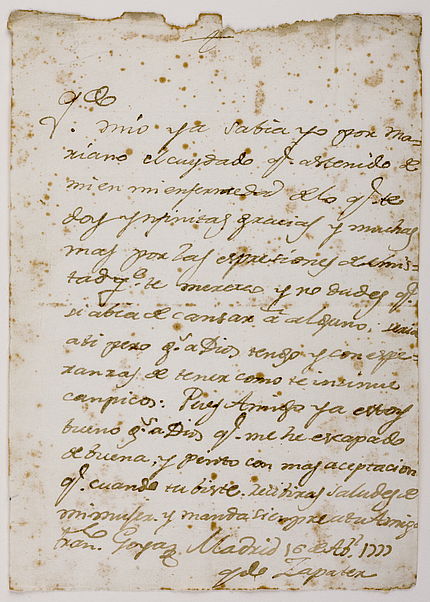 qdo
. mio ya sabia yo por Ma=
riano el cuydado q.e as tenido de
mi en mi enfermedad de lo q.e te
doy ynfinitas gracias y muchas
mas por las espresiones de amis=
tad q.e te merezco y no dudes q.e
si abia de cansar a alguno, seria
a ti pero g.s a Dios tengo y con espe=
ranzas de tener como te insinue
campicos: Pues Amigo ya estoy
bueno g.s a Dios q.e me he escapado
de buena, y pinto con mas aceptacion
q.e cuando tu biste. recibiras saludes de
mi muger y manda siempre a tu Amigo
Fran.co Goya Madrid 16 de Ab.l 1777
qdo Zapater